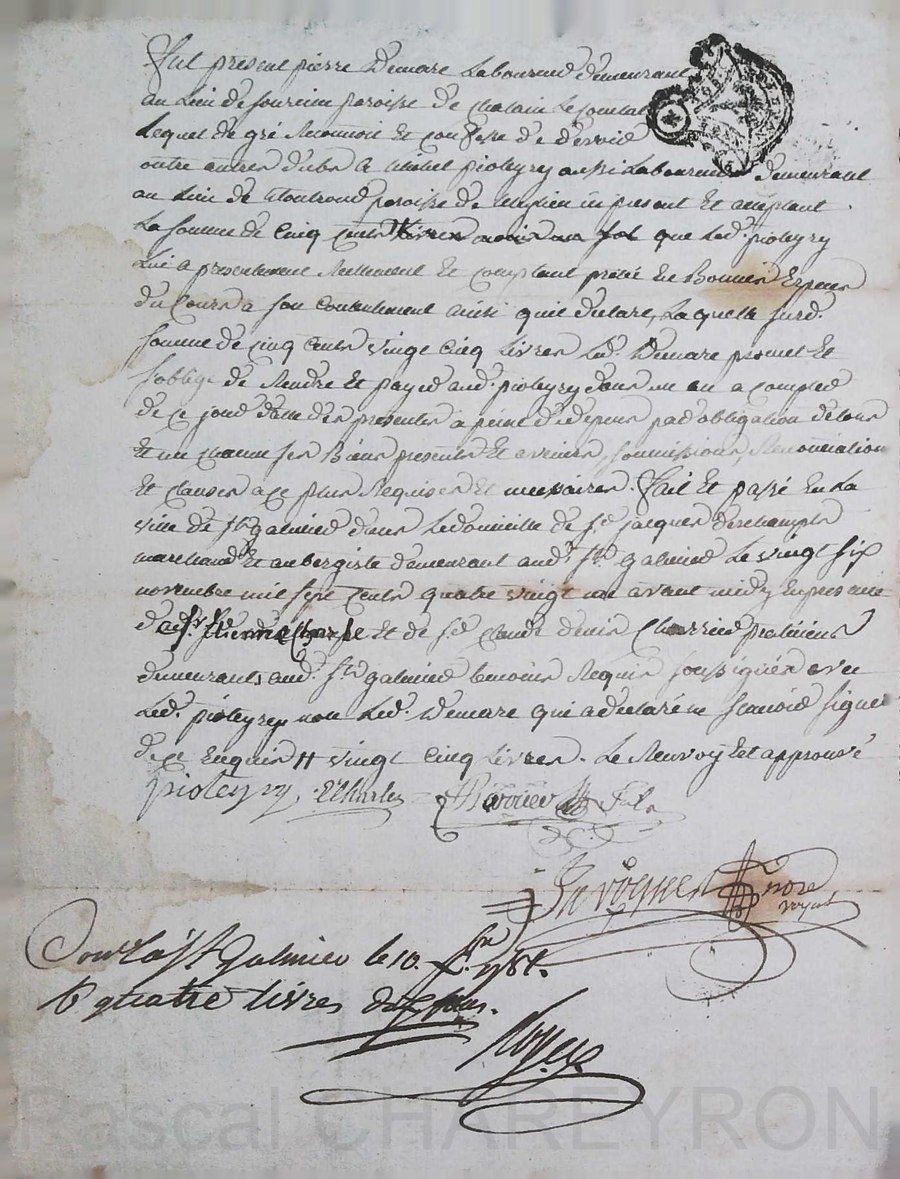 Fut present pierre Demare Laboureur demeurant
au Lieu de paroisse de Chalain Le Comtal
Lequel de gré Reconnoit Et Confesse de devoir
outre autres dubs a Michel pioteyry aussi Laboureur demeurant
au Lieu de Montrond paroisse de Meylieu icy present Et acceptant
La somme de Cinq Cents que Led. pioteyry
Lui a presentement Reellement Et Comptant preté En Bonnes Especes
du Cours a son Contentement ainsi qu'il declare, Laquelle surd.
somme de Cinq Cents vingt Cinq Livres Led. Demare promet Et
s'oblige de Rendre Et payer aud. pioteyry dans un an a Compter
de Ce jour datte des presentes a peine de depens par obligation de tous
Et un Chacun ses Biens presents Et avenir, soumissions, Renonciation
Et Clauses a Ce plus Requises Et necessaires. Fait Et passé En La
ville de St. galmier dans Le domicille de Sr. jacques deschamps
marchand Et aubergiste demeurant aud. St. galmier Le vingt six
novembre mil sept Cents quatre vingt un avant midy En presence
de Sr. Etienne Charle Et de Sr. Claude denis praticiens
demeurants aud. St. galmier temoins Requis soussignés avec
Led. pioteyry non Led. Demare qui a declaré ne sçavoir signer
de Ce Enquis # vingt Cinq Livres. Le Renvoy Est approuvé
pioteyry. E Charles fils
nore
royal
Con.lé a St Galmier le 10. 1781.
R quatre livres dix sols.